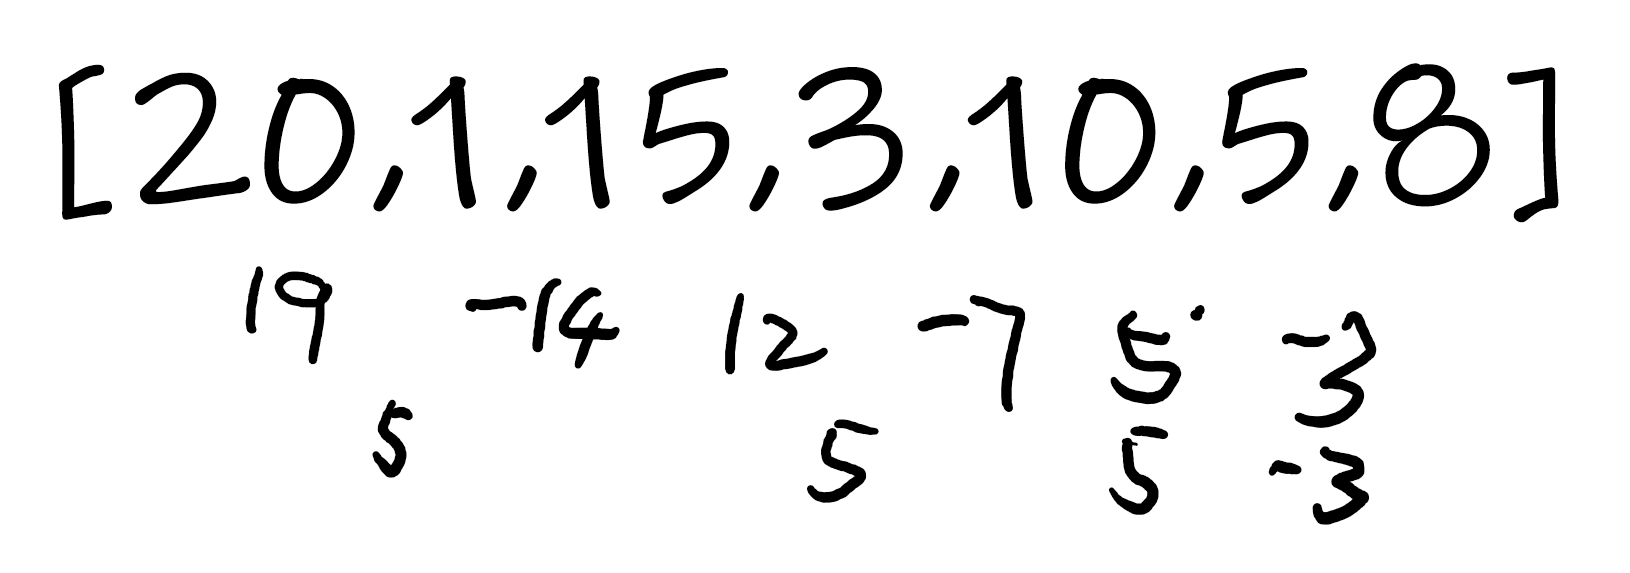 [20,1,15,3,10,5,8]
19 -14 12 -7 5 -3
5 5 5 -3